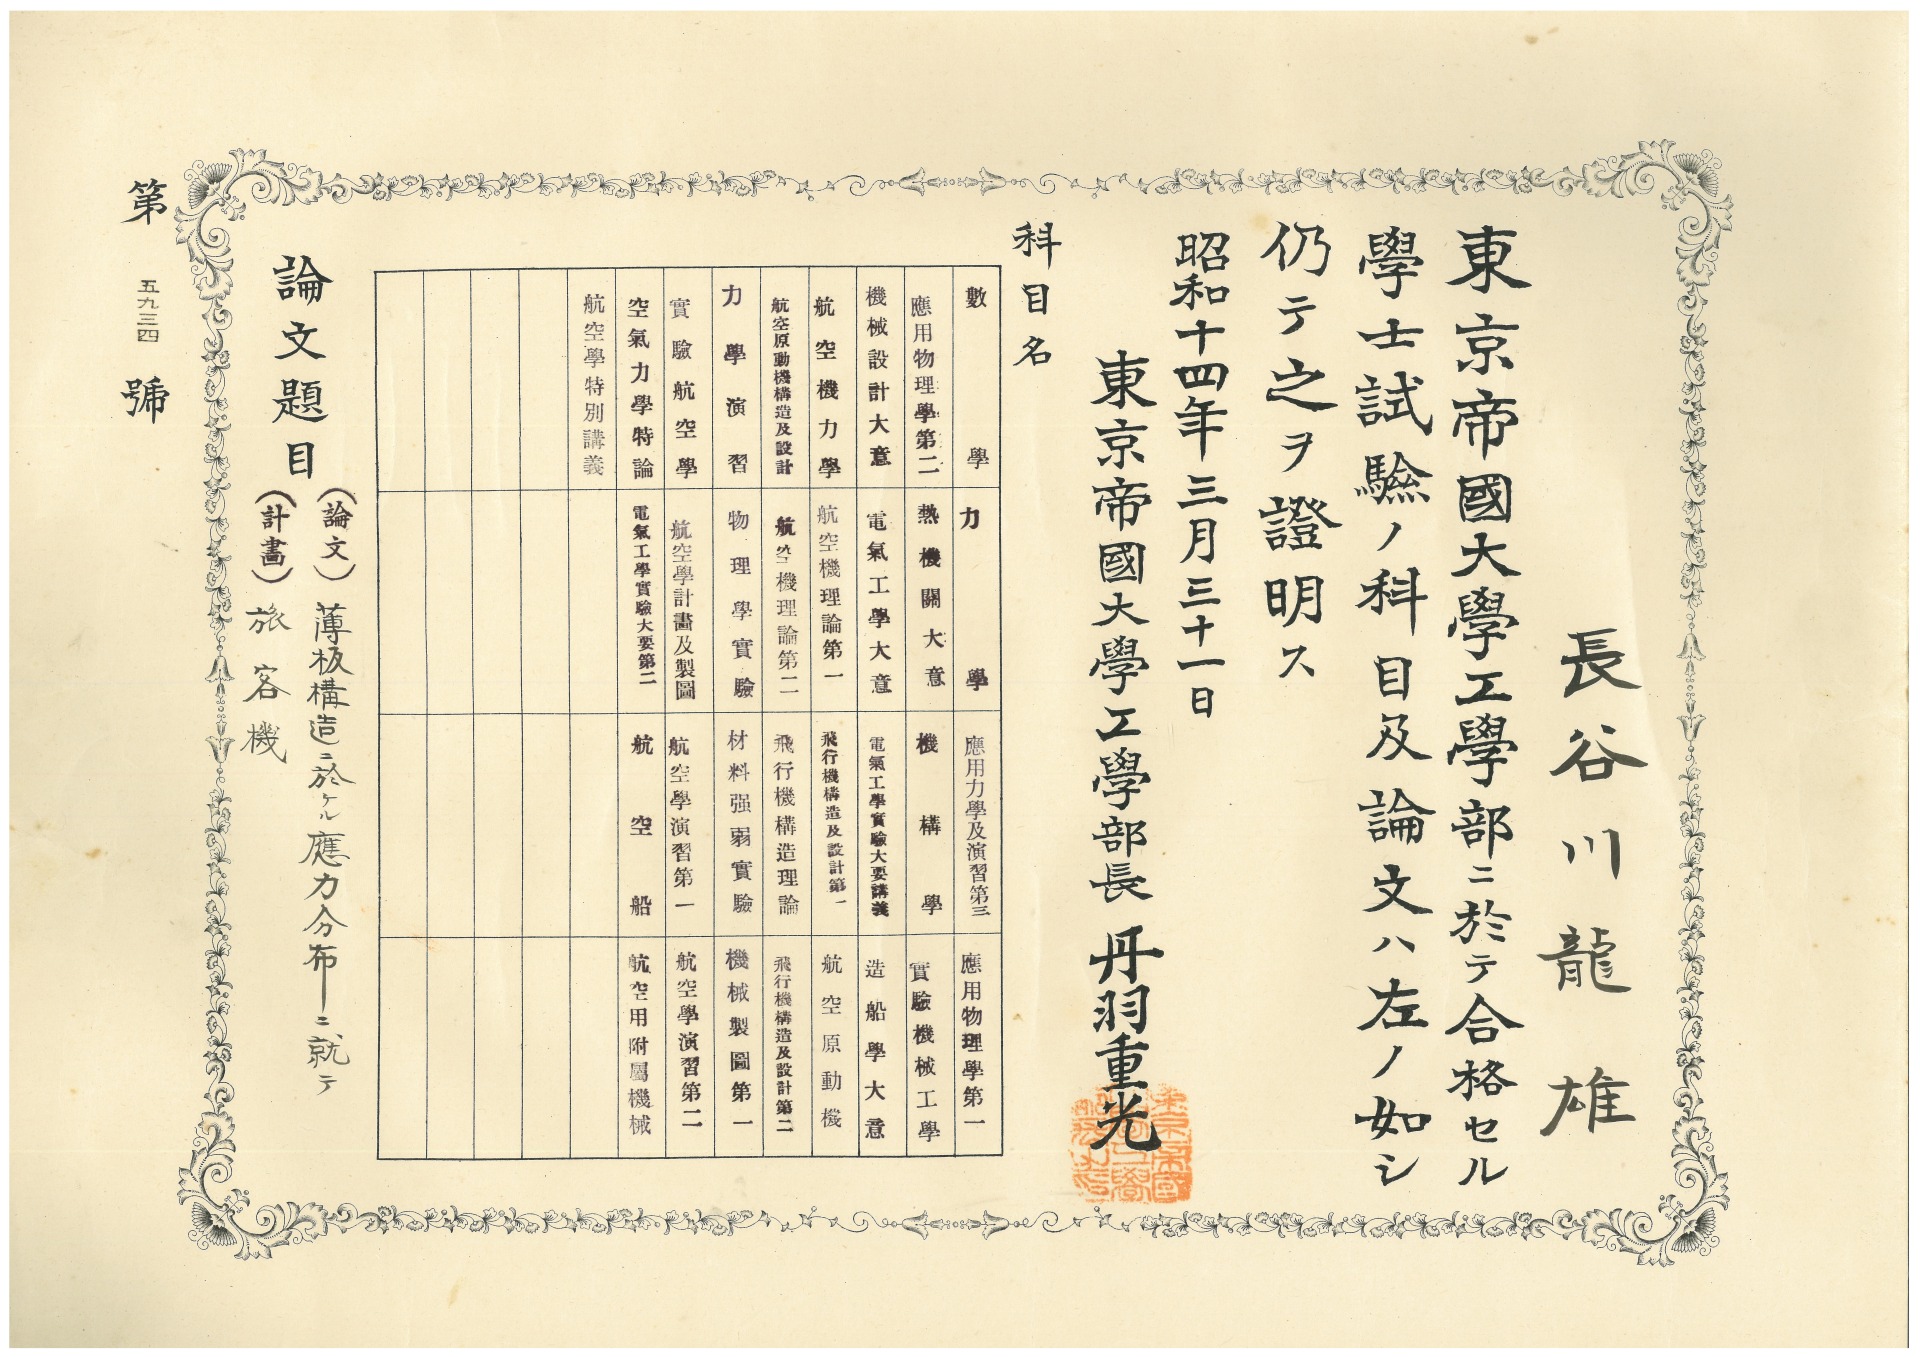 長谷川龍雄
東京帝國大學工學部ニ於テ合格セル
學士試驗ノ科目及論文ハ左ノ如シ
仍テ之ヲ證明ス
昭和十四年三月三十一日
東京帝國大學工學部長 丹羽重光
科目名
數學
力學
應用力學及演習第三
應用物理學第一
應用物理學第二
熱機關大意
機構學
實驗機械工學
機械設計大意
電氣工學大意
電氣工學實驗大要講義
造船學大意
航空機力學
航空機理論第一
飛行機構造及設計第一
航空原動機
航空原動機構造及設計
航空機理論第二
飛行機構造理論
飛行機構造及設計第二
力學演習
物理學實驗
材料强弱實驗
機械製圖第一
實驗航空學
航空學計畫及製圖
航空學演習第一
航空學演習第二
空氣力學特論
電氣工學實驗大要第二
航空船
航空用附屬機械
航空學特別講義
論文題目
(論文) 薄板構造ニ於ケル應力分布ニ就テ
(計畫) 旅客機
第五九三四號